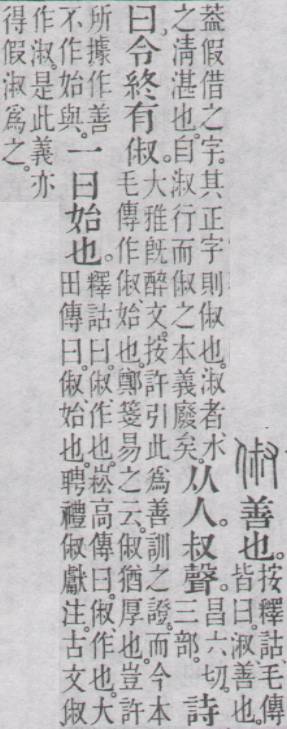 俶善也。按釋詁、毛傳皆曰。淑、善也。
葢假借之字。其正字則俶也。淑者、水之清湛也。自淑行而俶之本義廢矣。从人。叔聲。昌六切。三部。詩
曰。令終有俶。大雅旣醉文。按許引此、爲善訓之證。而今本毛傳作俶、始也。鄭箋易之云。俶猶厚也。豈許
所據作善不作始與。一曰始也。釋詁曰。俶、作也。崧高傳曰。俶、作也。大田傳曰。俶、始也。聘禮俶獻注。古文俶
作淑。是此義亦得假淑爲之。